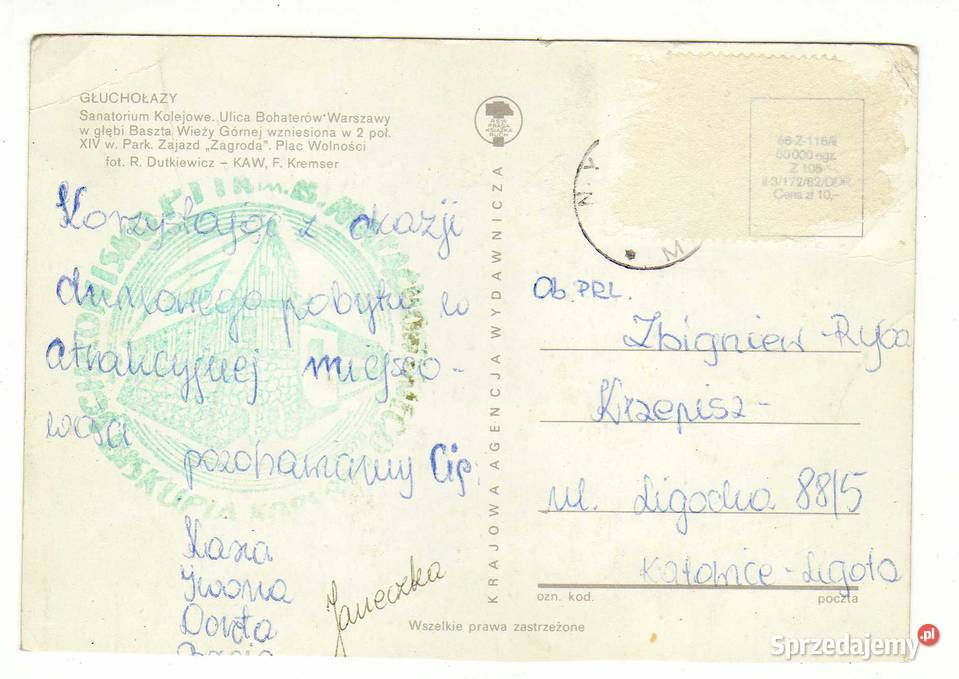 GŁUCHOŁAZY
Sanatorium Kolejowe. Ulica Bohaterów Warszawy
w głębi Baszta Wieży Górnej wzniesiona w 2 poł.
XIV w. Park. Zajazd „Zagroda". Plac Wolności
fot. R. Dutkiewicz – KAW, F. Kremser
Korzystając z okazji
pobytu w
atrakcyjnej miejsco-
wości
pozdrawiamy Cię
Kasia
Iwona
Dorota
Basia
Janeczka
BISKUPIA
KRAJOWA AGENCJA WYDAWNICZA
RSW
PRASA
KSIĄŻKA
RUCH
66-Z-116/II
50 000 egz.
Z 105
II-3/172/82/DDR
Cena zł 10,–
Ob. PRL.
Zbigniew-Ryba
Krzepisz-
ul. Ligocka 88/5
Katowice-Ligota
ozn. kod.
poczta
Wszelkie prawa zastrzeżone
Sprzedajemy.pl